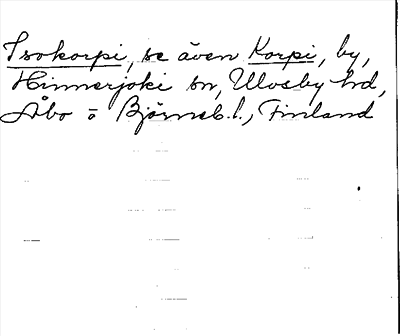 Isokorpi, se även Korpi, by,
Hinnerjoki sn, Ulvsby hrd,
Åbo o Björneb. l., Finland